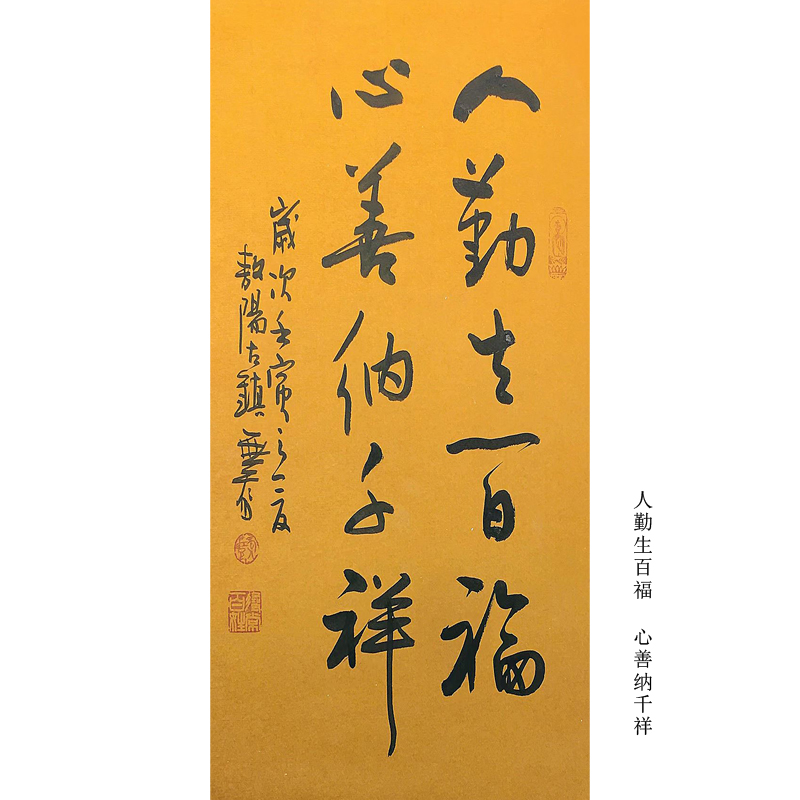 人勤生百福
心善纳千祥
歲次壬寅之夏
敖陽古鎮
人勤生百福 心善纳千祥